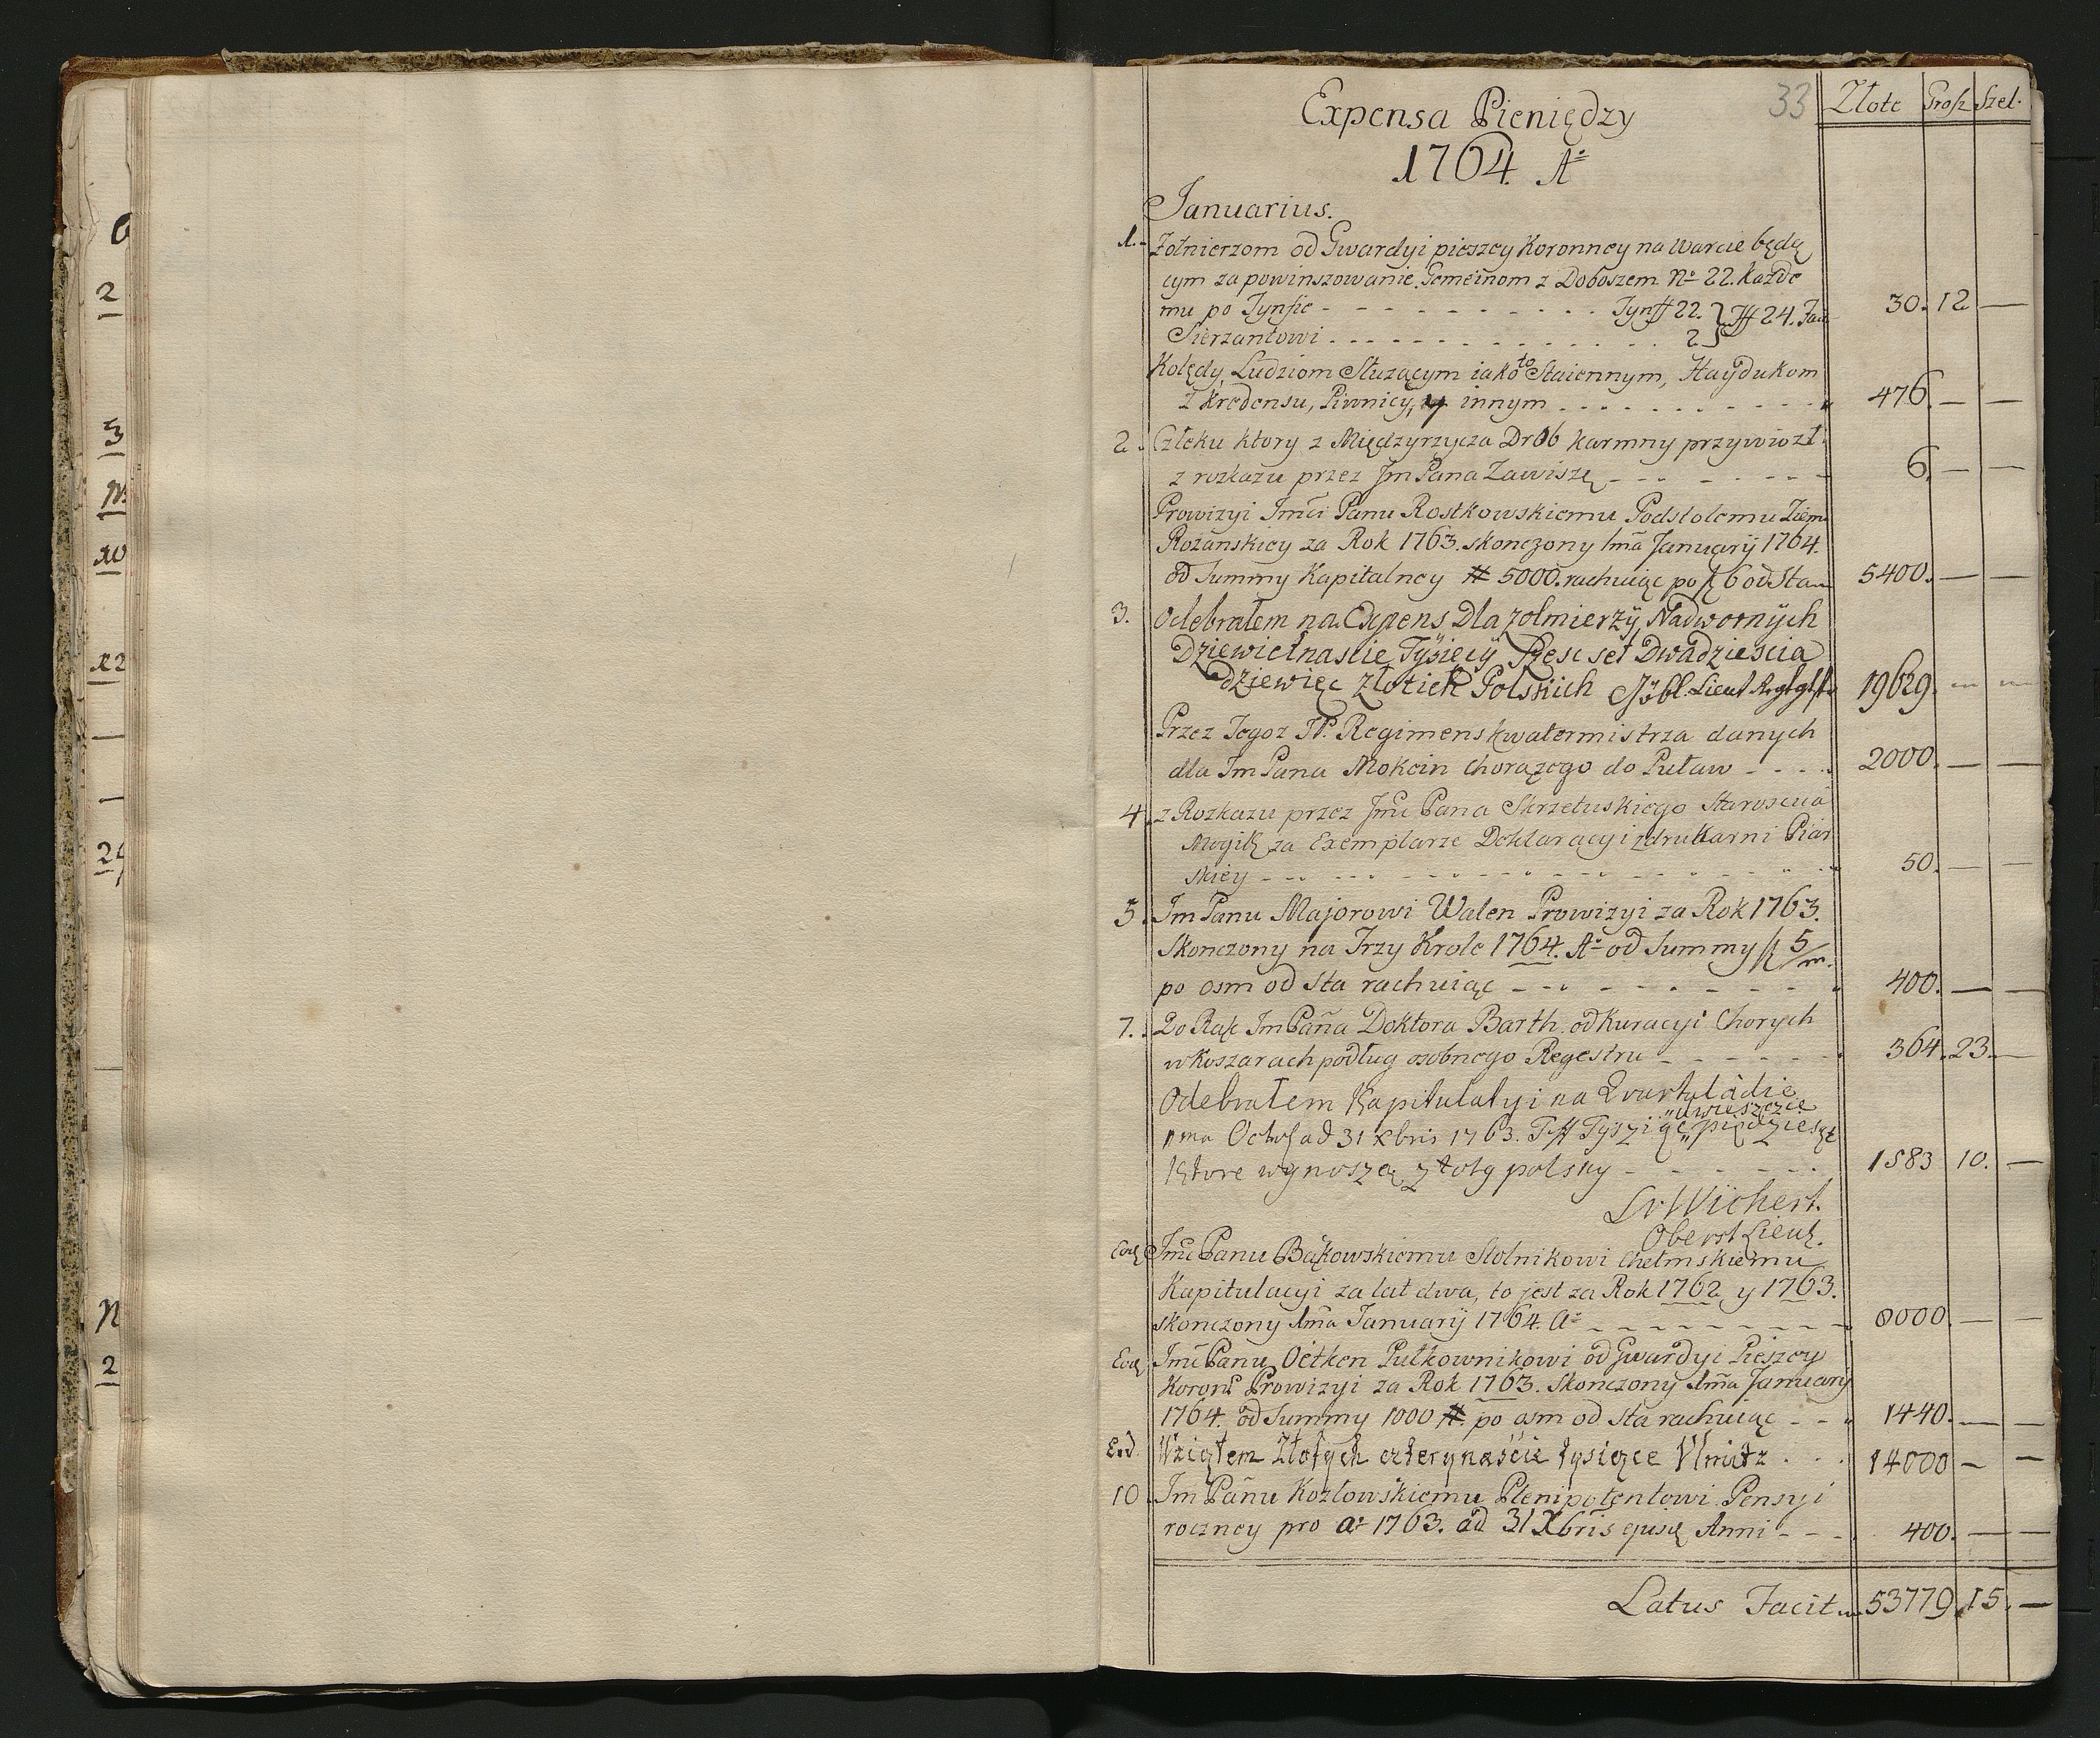 33
Expensa Pieniędzy
1764. A°
Złote Grosz Szel.
Januarius.
1. Zołnierzom od Gwardyi pieszey Koronney na Warcie będą
cym za powinszowanie. Gemeinom z Doboszem N° 22. Każde
mu po Tynfie - - - - Tynff 22. } Tff 24. Fac. 30. 12 —
Sierzantowi . . . . . 2.
Kolędy Ludziom Służącym iako to Staiennym, Haydukom
z Kredensu, Piwnicy, y innym . . . . 476. — —
2. Człeku ktory z Międzyrzycza Drób karmny przywiozł
z rozkazu przez Jm Pana Zawiszę - - - 6. — —
Prowizyi Jmci Panu Rostkowskiemu Podstolemu Ziem
Rozanskiey za Rok 1763. skonczony 1ma Januarij 1764.
od Summy Kapitalney # 5000. rachuiąc po 6 od Sta 5400. — —
3. Odebrałem na Expens Dla zołmierzÿ Nadwornÿch
Dziewietnascie Tÿsiecÿ Szesc set Dwadziescia
dziewięc złotich Polskich 19629. — —
Przez Tegoz JP. Regimenskwatermistrza danych
dla Jm Pana Mokcin Chorązego do Puław - - - 2000. — —
4. z Rozkazu przez Jmci Pana Skrzetuskiego
za Exemplarze Deklaracyi z drukarni Piar
skiey - - - 50. — —
5. Jm Panu Majorowi Walen Prowizyi za Rok 1763.
Skonczony na Trzy Krole 1764. A° od Summy 5/m.
po osm od Sta rachuiąc - - - 400. — —
7. Do Rąk Jm Pana Doktora Barth. od Kuracyi Chorych
w Koszarach podług osobnego Regestru - - - 364. 23. —
Odebrałem Kapitulatyi na
1ma ad 31 Xbris 1763. Tff Tysziąc
dwieszcie
Ktore wynoszą złoty polsky - - - 1583 10. —
Wichert.
Oberst Lieut.
Eod Jmci Panu Bąkowskiemu Stolnikowi Chełmskiemu
Kapitulacyi za lat dwa, to jest za Rok 1762 y 1763.
skonczony 1ma Januarij 1764. A° - - - 8000. — —
Eod Jmci Panu Oetken Pułkownikowi od Gwardyi Pieszey
Koron Prowizyi za Rok 1763. Skonczony 1ma Januarij
1764. od Summy 1000 # po osm od Sta rachuiąc - - - 1440. — —
Eod. Wziąłem Złotych czterynaście tysięce . . . 14000 — —
10. Jm Panu Kozłowskiemu Plenipotentowi Pensyi
roczney pro A° 1763. ad 31 Xbris Anni - - - 400. — —
Latus Facit 53779. 15. —
0
2
3
10
12
2